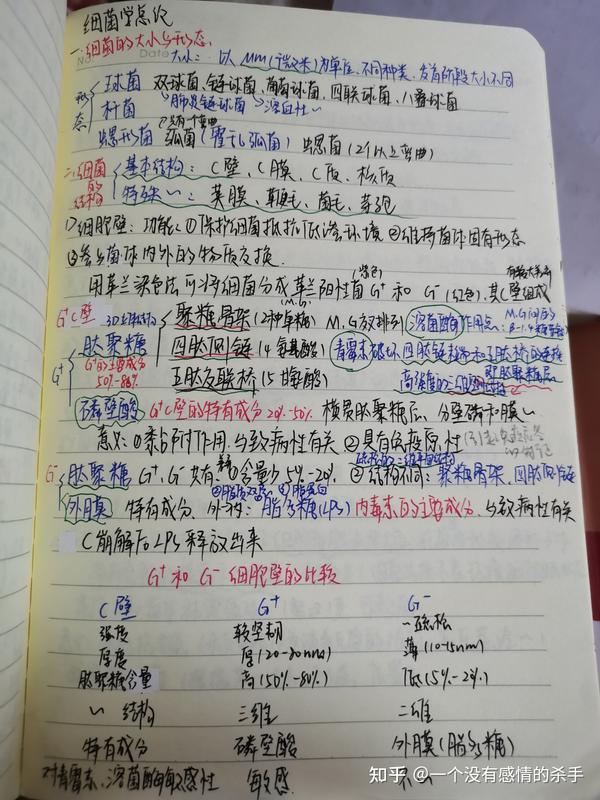 细菌学总论
No.
Date
一.细菌的大小与形态.
大小：以μm(微米)为单位、不同种类、发育阶段大小不同
形态
球菌 双球菌、链球菌、葡萄球菌、四联球菌、八叠球菌
杆菌 肺炎链球菌 溶血性〃
螺形菌 弧菌(霍乱弧菌) 螺菌(2个以上弯曲)
只有一个弯曲
二.细菌结构
基本结构：C壁、C膜、C质、核质
特殊〃：荚膜、鞭毛、菌毛、芽孢
1)细胞壁：功能：①保护细菌抵抗低渗环境 ②维持菌体固有形态
③参与菌体内外的物质交换.
用革兰染色法可将细菌分成革兰阳性菌G⁺(紫色)和G⁻(红色),其C壁组成
G⁺C壁 3D立体结构
聚糖骨架(2种单糖) M.G交替排列
溶菌酶作用点：M.G间的β-1.4糖苷键
G⁺ 肽聚糖 四肽侧链(4氨基酸)
青霉素破坏四肽链和五肽桥的连接
G⁺的主要成分
50%-80%
五肽交联桥(5甘氨酸)
磷壁酸 G⁺C壁的特有成分20%-50% 横贯肽聚糖层、分壁磷和膜〃
意义：①黏附作用、与致病性有关 ②具有免疫原性
G⁻ 肽聚糖 G⁺、G⁻共有 ①含量少5%-20% ②结构不同：聚糖骨架、四肽侧链
外膜 特有成分、外→内：脂多糖(LPS) 内毒素的主要成分、与致病性有关
C崩解后LPS释放出来
G⁺和G⁻细胞壁的比较
C壁 G⁺ G⁻
强度 较坚韧 疏松
厚度 厚(20-80nm) 薄(10-15nm)
肽聚糖含量 高(50%-80%) 低(5%-20%)
〃结构 三维 二维
特有成分 磷壁酸 外膜(脂多糖)
对青霉素、溶菌酶的敏感性 敏感
知乎 @一个没有感情的杀手